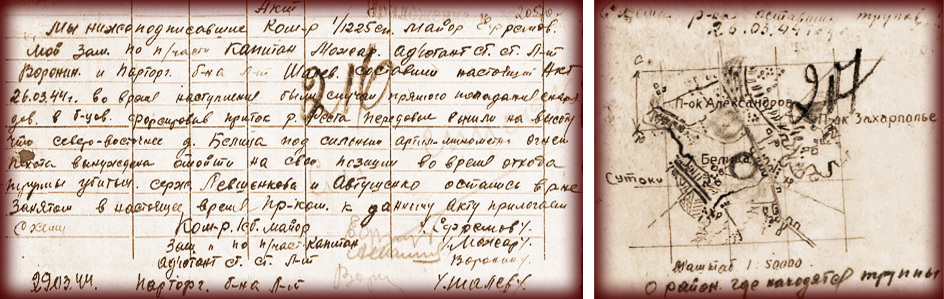 Акт
Мы нижеподписавшие Ком-р 1/1225сп. майор Ефремов.
Мов Зам. по п/части Капитан Можар. адъютант ст. ст. Л-т
Воронин. и Парторг. б-на Л-т Шалев. составили настоящий Акт
26.03.44г. во время наступления были случаи прямого попадания снаря
дов. в б-цов. форсировав приток р. Реста передовые вышли на высоту
что северо-восточнее д. Белица под сильным артил. миномет. огнем
пехота вынуждена отойти на свои позиции во время отхода
трупы убитых. серж. Левшенкова и Автушенко остались в р-не
Занятом в настоящее время Пр-ком. к данному акту прилогаем
схему
Ком-р. 1сб. майор /. Ефремов/.
Зам " по п/част. капитан /. Можар/
адютант ст. ст. Л-т Воронин/.
29.03.44. Парторг. б-на Л-т /. Шалев/.
216
р-на оставших трупов
26.03.44 года
217
П-ок Александров
П-ок Захарполье
Белица
Сутоки
Масштаб 1:50000.
О район. где находятся труппы